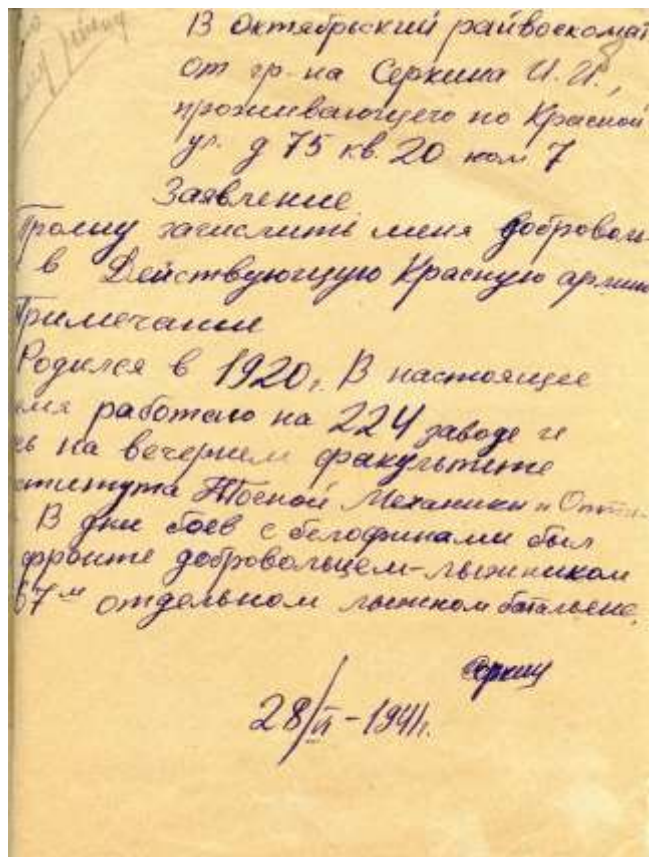 В Октябрьский райвоскомат
от гр-на Серкина И.И.,
проживающего по Красной
ул. д 75 кв. 20 ком 7
Заявление
Прошу зачислить меня доброволь
в Действующую Красную армию
Примечание
Родился в 1920г. В настоящее
мя работаю на 224 заводе и
сь на вечернем факультете
ститута Точной Механики и Опти
В дни боев с белофинами был
фронте добровольцем-лыжником
67м отдельном лыжном батальене.
Серкин
28/VI-1941г.